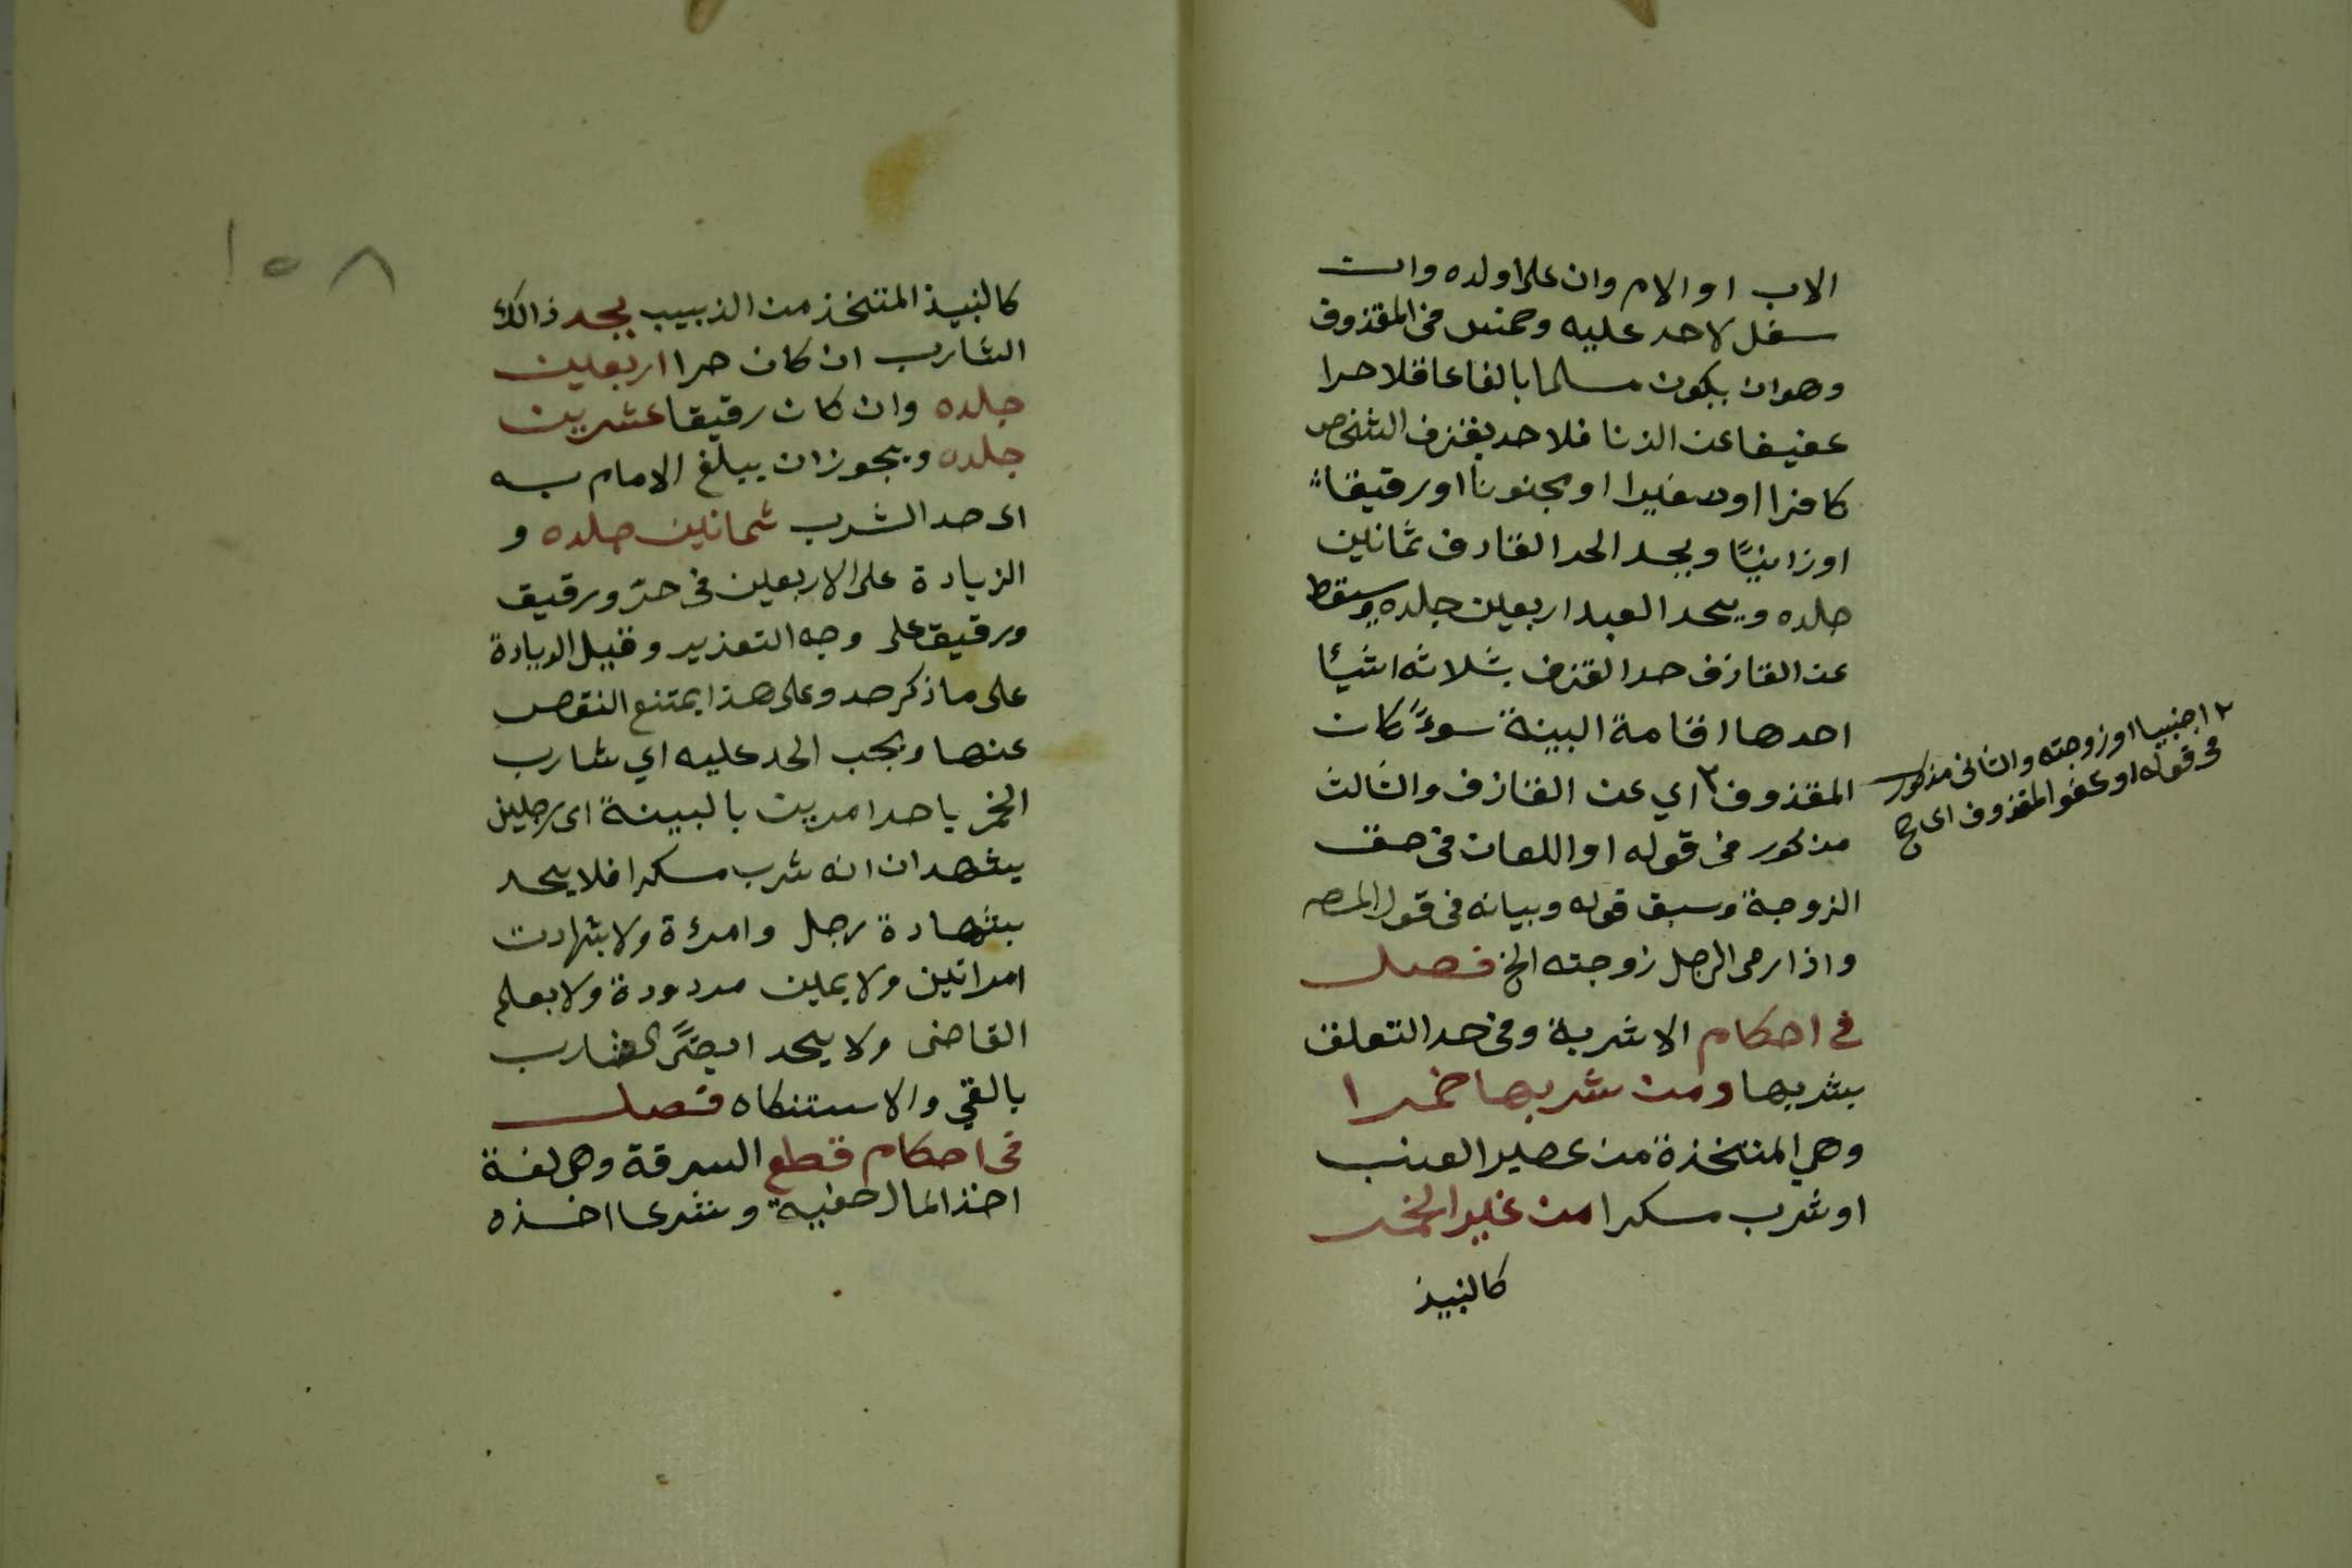 الاب او الام وان علا ولده وان
سفل لا حد عليه وخمس فى المقذوف
وهو ان يكون مسلما بالغا عاقلا حرا
عفيفا عن الزنا فلا حد بقذف الشخص
كافرا او صغيرا او مجنونا او رقيقاً
او زانيًا ويحد الحد القادف ثمانين
جلده ويحد العبد اربعين جلده ويسقط
عن القازف حد القذف بثلاثه اشئا
احدها اقامة البينة سوءً كان
المقذوف٢ اي عن القازف والثالث
٢ اجنبيا او زوجته والثانى مذكور
فى قوله او عفو المقذوف اى صح
مذكور فى قوله او اللعان فى حق
الزوجة وسبق قوله وبيانه فى قول المصـ
واذا رمى الرجل زوجته الخ فصل
فى احكام الاشربة وفى حد التعلق
بشربها ومن شربها خمرا
وهي المتخذة من عصير العنب
او شرب مسكرا من غير الخمر
كالنبيذ
١٥٨
كالنبيذ المتخذ من الذبيب يحد ذالك
الشارب ان كان حرا اربعين
جلده وان كان رقيقا عشرين
جلده ويجوز ان يبلغ الامام به
اى حد الشرب ثمانين جلده و
الزيادة على الاربعين فى حرّ ورقيق
ورقيق على وجه التعذير وقيل الزيادة
على ما ذكر حد وعلى هذا يمتنع النقص
عنها ويجب الحد عليه اي شارب
الخمر باحد امرين بالبينة اى رجلين
يشهدان انه شرب مسكرا فلا يحد
بشهادة رجل وامرءة ولا بشهادت
امراتين ولا يمين مردودة ولا بعلم
القاضى ولا يحد ايضًا الشارب
بالقي والاستنكاه فصل
فى احكام قطع السرقة وهى لغة
اخذ المال خفية وشرعا اخذه